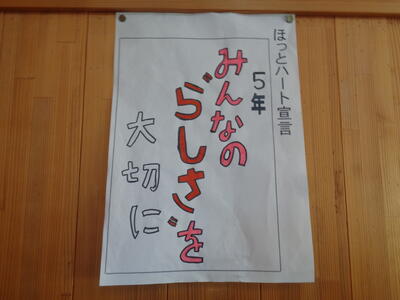 ほっとハート宣言
5年
みんなの
"らしさ"を
大切に